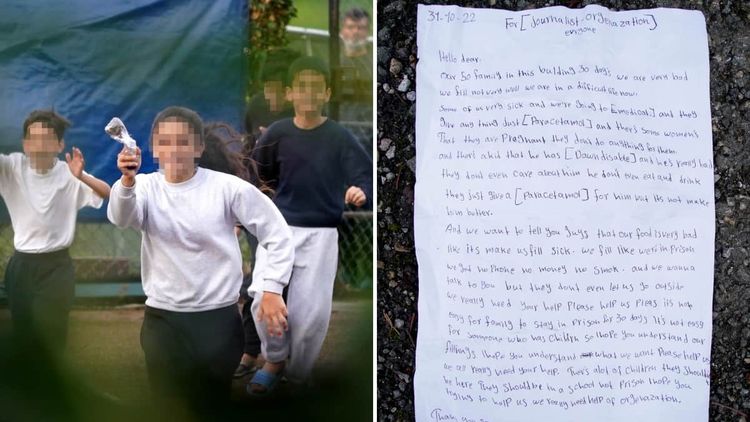 31-10-22
For [Journalist, orgenazation]
everyone
Hello dear.
our 50 family in this building 30 days we are very bad
we fill not very well we are in a difficult life now.
Some of us very sick and we're going to [emedical] and they
give any thing Just [Paracetamol] and there's some women's
That they are Pregnant they dont do anything for them.
and there a kid that he has [Down disable] and he's really bad
they dont even care about him he dont even eat and drink
they Just give a [Paracetamol] for him but its not make
him better.
And we want to tell you guys that our food is very bad
like its make us fill sick. we fill like we're in Prison
we got no Phone no money no smok. and we wanna
talk to you but they dont even let us go outside
we really need your help Please help us Pleas its not
easy for family to stay in Prison for 30 days it's not easy
for someone who has childrn so I hope you understand our
fillings I hope you understand what we want Please help us
we all really need your help. Ther's alot of children they shouldn't
be here They should be in a school not Prison I hope you
trying to help us we really need help of orgenazation.